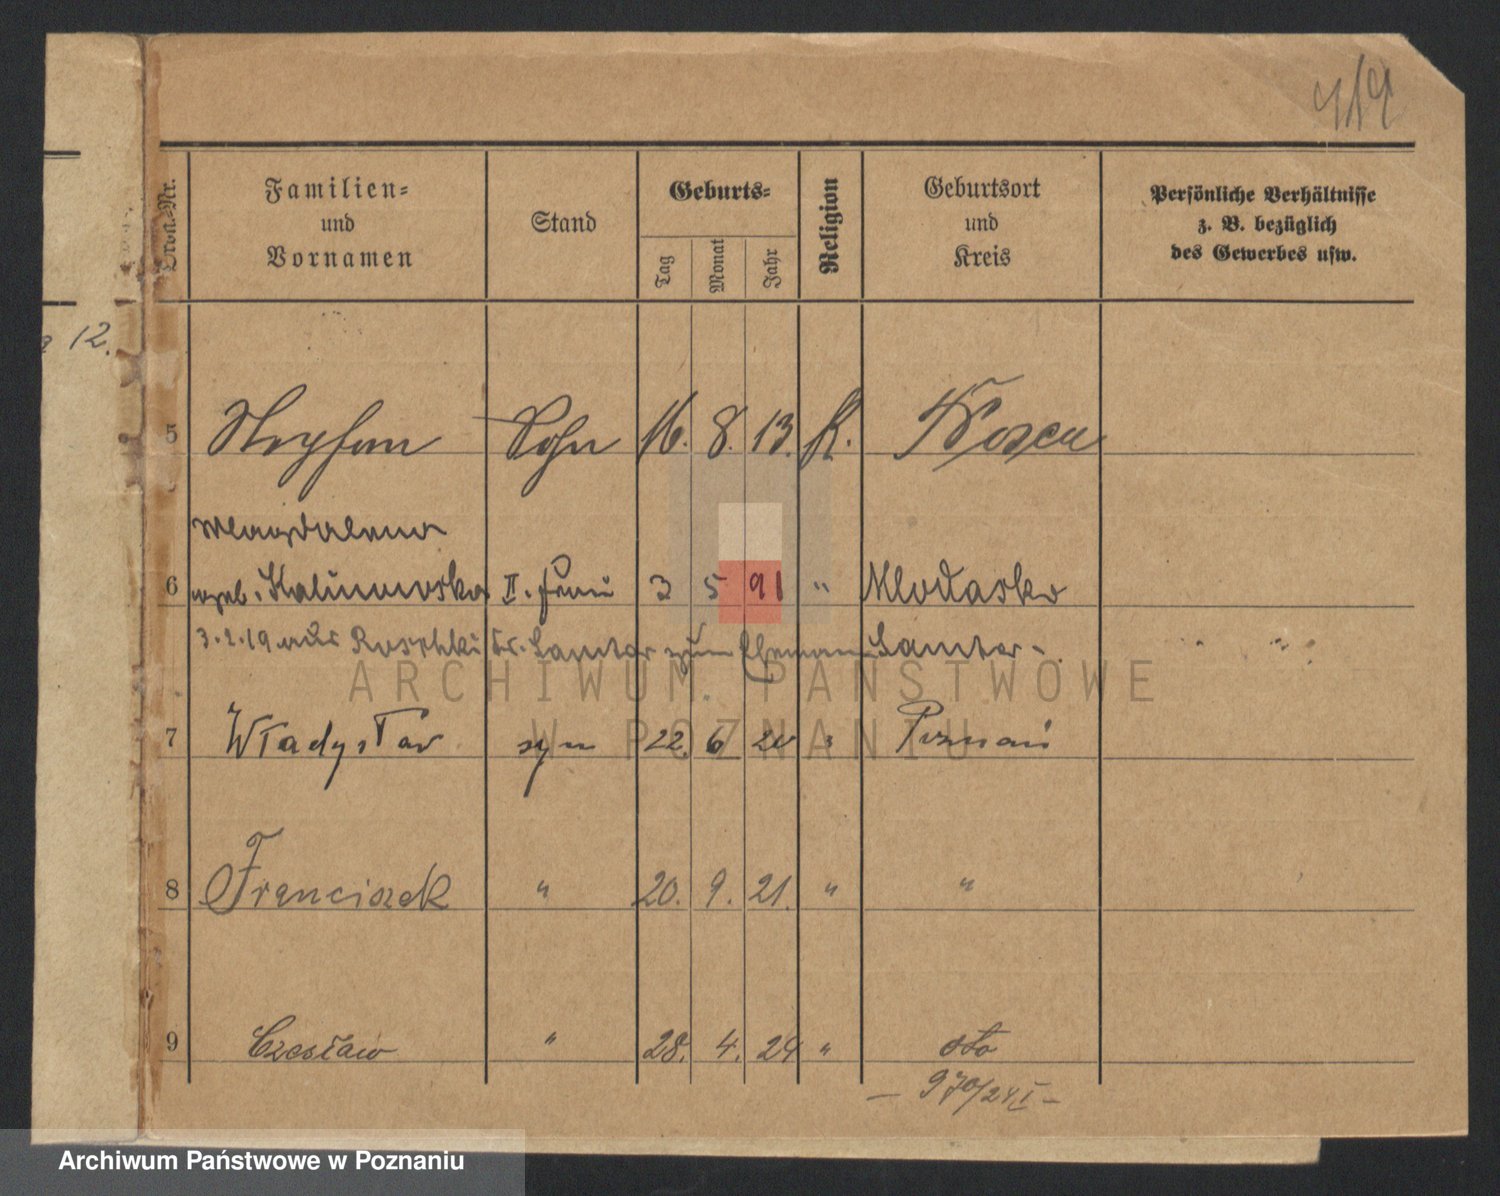 Ordn.-Nr.
Familien-
und
Vornamen
Stand
Geburts-
Tag
Monat
Jahr
Religion
Geburtsort
und
Kreis
Persönliche Verhältnisse
z. B. bezüglich
des Gewerbes usw.
12.
5 Stephan Sohn 16. 8. 13. K. Posen
Magdalena
6 geb. Kalinowska II. Frau 3 5 91 " Mlodasko
3.2.19 aus Kr. Samter zum Ehemann Samter -
7 Władysław syn 22. 6 20 Poznań
8 Franciszek " 20. 9. 21. " "
9 Czesław " 28. 4. 24 " dto
- 970/24 I -
ARCHIWUM PAŃSTWOWE
W POZNANIU
Archiwum Państwowe w Poznaniu